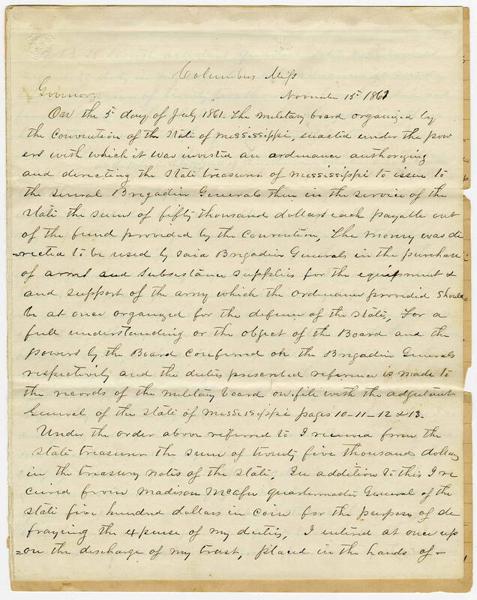 Columbus Miss
Governor November 15th 1861
On the 5th day of July 1861 The Military board organized by
the Convention of the State of Mississippi, enacted under the pow
ers with which it was invested an ordinance authorizing
and directing the State treasurer of Mississippi to issue to
the several Brigadier Generals then in the service of the
state the sums of fifty thousand dollars each payable out
of the fund provided by the Convention, The money was de
=rected to be used by said Brigadier Generals in the purchase
of arms and subsistance supplies for the equipment &
and support of the army which the ordinance provided should
be at once organized for the defence of the state, For a
full understanding or the object of the Board and the
powers by the Board conferred on the Brigadier Generals
respectively and the duties prescribed reference is made to
the records of the military board on file with the adjutant
General of the state of Mississippi pages 10-11-12 & 13.
Under the order above referred to I received from the
state treasurer the sum of twenty five thousand dollars
in the treasury notes of the state, In addition to this I re
ceived from Madison McAfee Quartermaster General of the
state five hundred dollars in coin for the purpose of de
fraying the expense of my duties, I entered at once up
=on the discharge of my trust, placed in the hands of